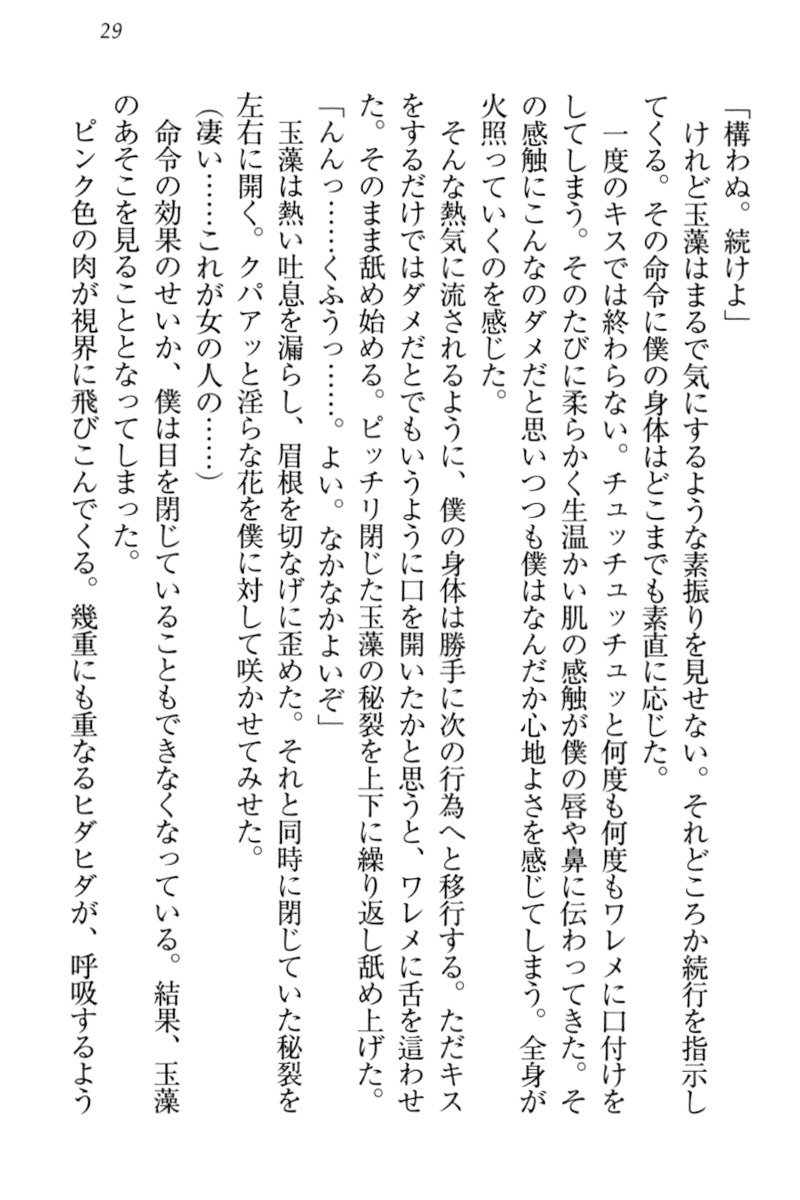 29
「構わぬ。続けよ」
けれど玉藻はまるで気にするような素振りを見せない。それどころか続行を指示し
てくる。その命令に僕の身体はどこまでも素直に応じた。
一度のキスでは終わらない。チュッチュッチュッと何度も何度もワレメに口付けを
してしまう。そのたびに柔らかく生温かい肌の感触が僕の唇や鼻に伝わってきた。そ
の感触にこんなのダメだと思いつつも僕はなんだか心地よさを感じてしまう。全身が
火照っていくのを感じた。
そんな熱気に流されるように、僕の身体は勝手に次の行為へと移行する。ただキス
をするだけではダメだとでもいうように口を開いたかと思うと、ワレメに舌を這わせ
た。そのまま舐め始める。ピッチリ閉じた玉藻の秘裂を上下に繰り返し舐め上げた。
「んんっ……くふうっ……。よい。なかなかよいぞ」
玉藻は熱い吐息を漏らし、眉根を切なげに歪めた。それと同時に閉じていた秘裂を
左右に開く。クパアッと淫らな花を僕に対して咲かせてみせた。
(凄い……これが女の人の……)
命令の効果のせいか、僕は目を閉じていることもできなくなっている。結果、玉藻
のあそこを見ることとなってしまった。
ピンク色の肉が視界に飛びこんでくる。幾重にも重なるヒダヒダが、呼吸するよう